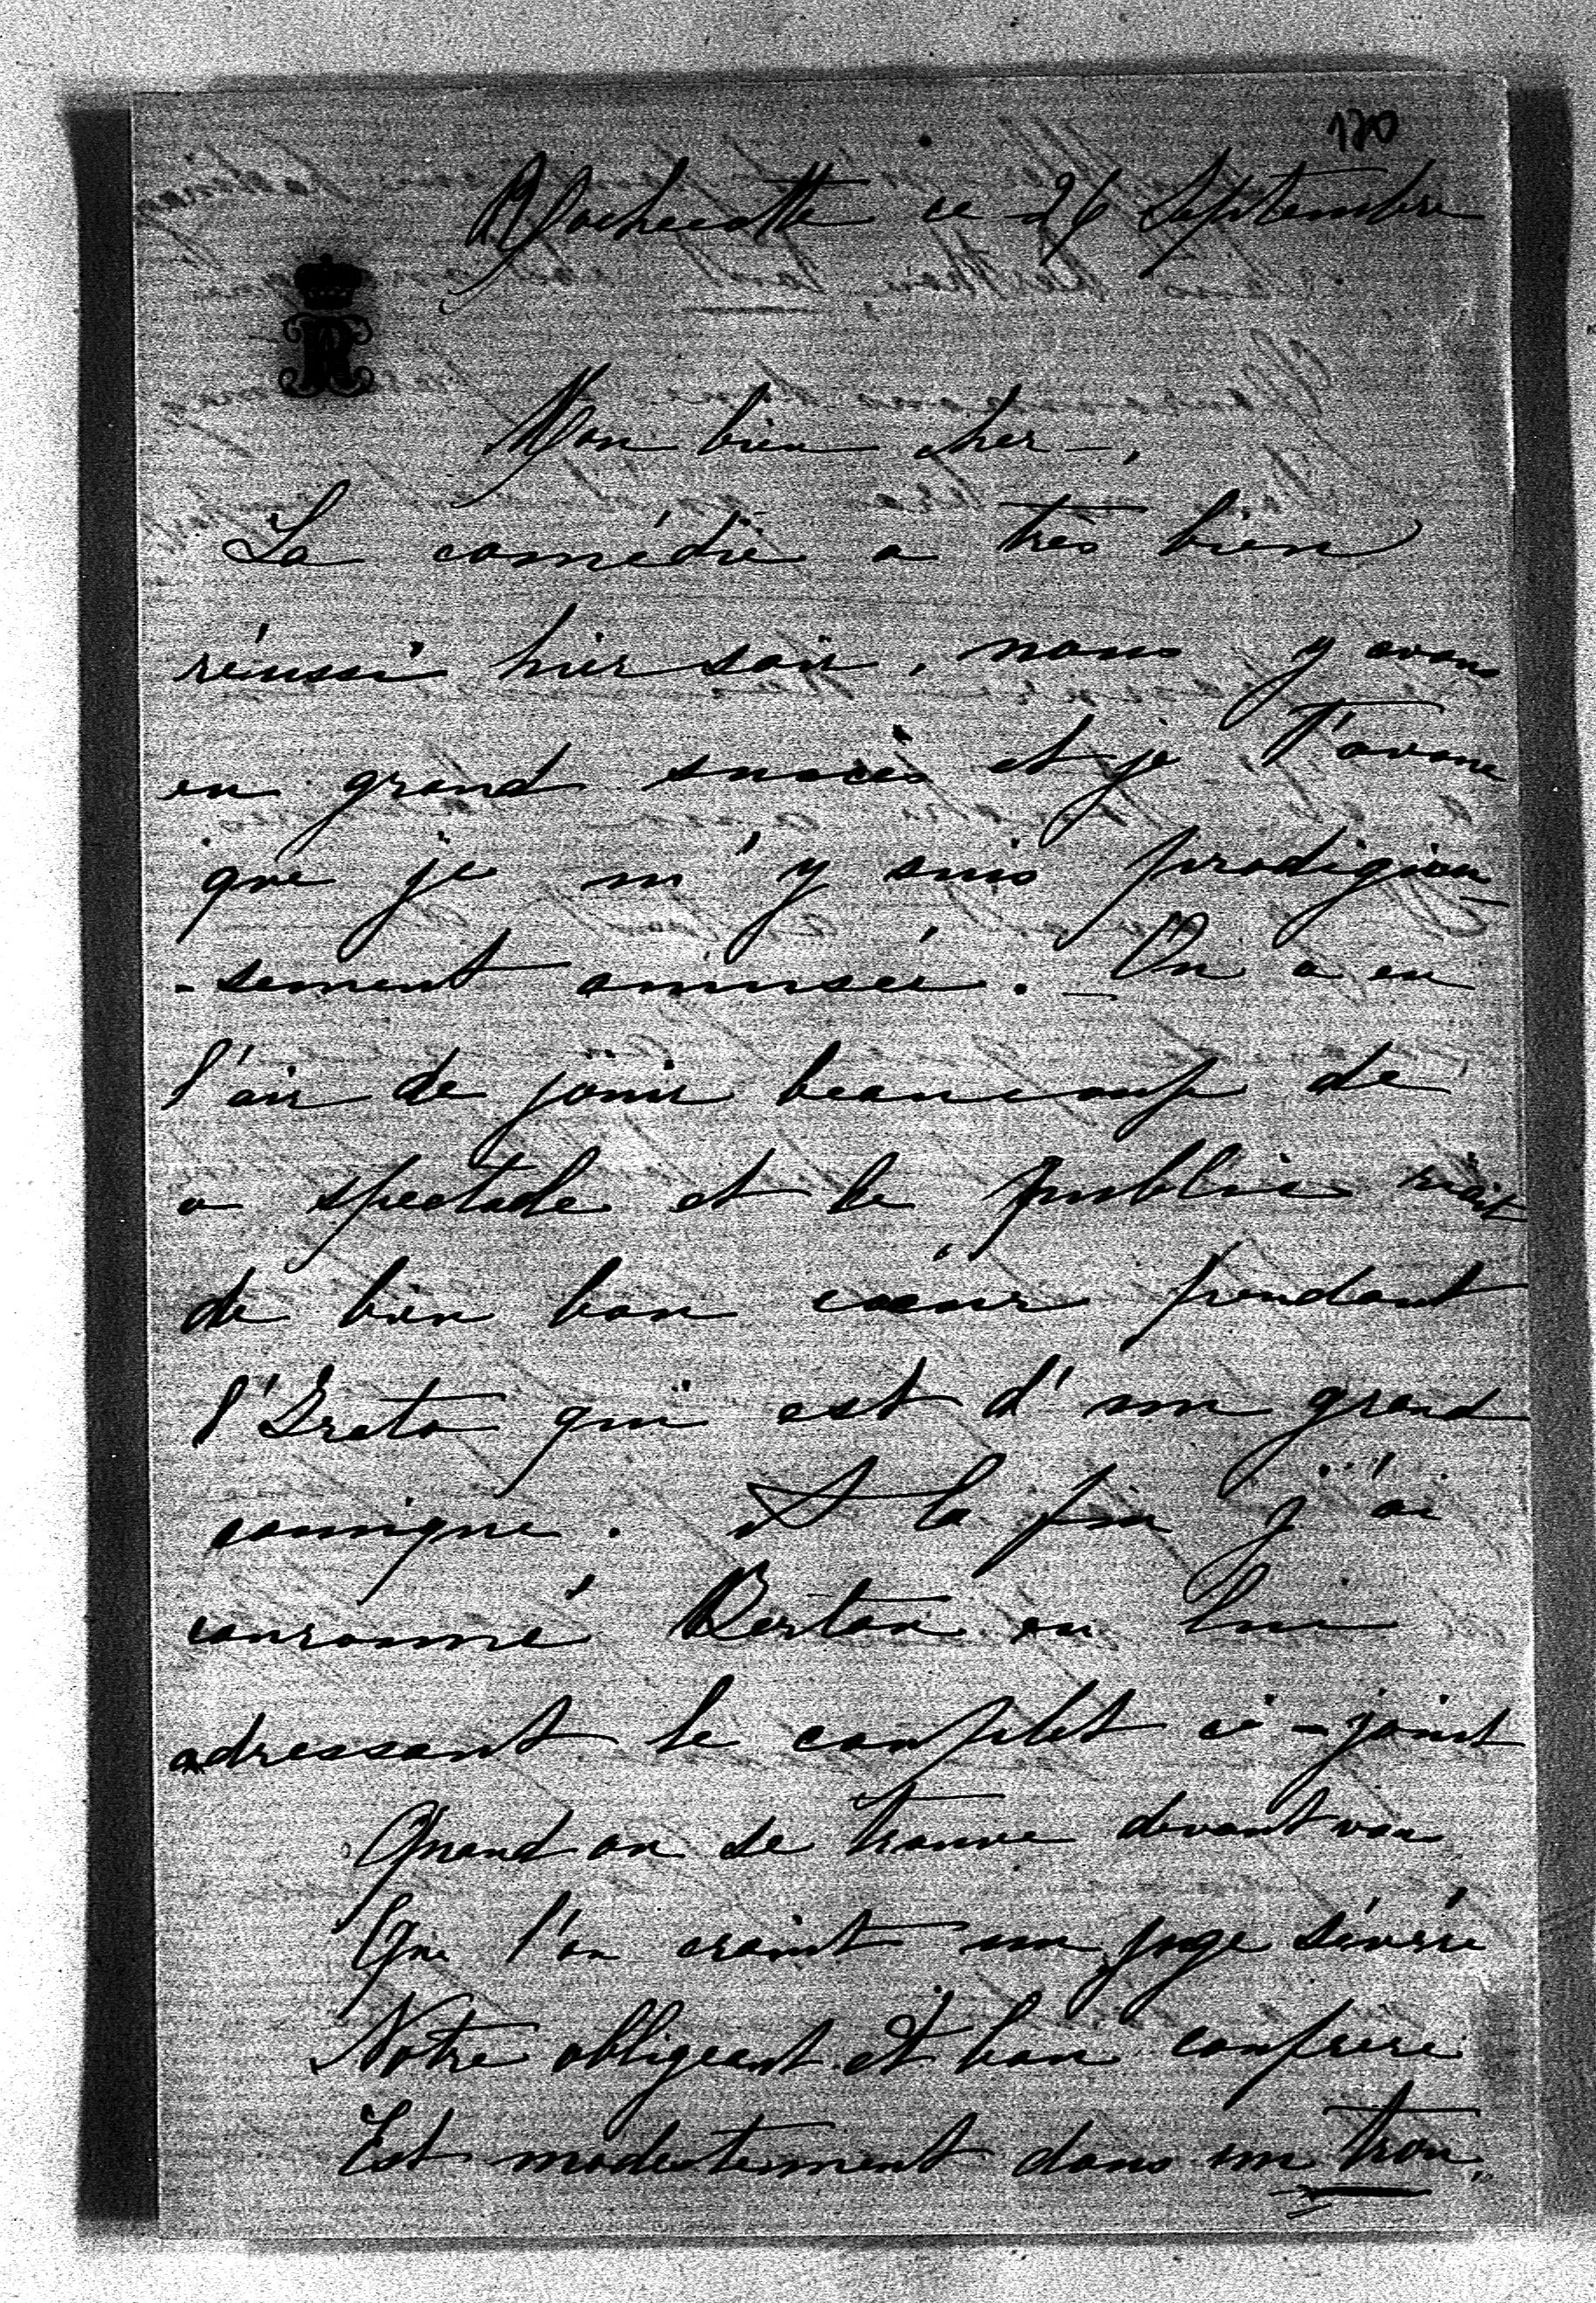 120
Rochecotte ce 26 Septembre
R
Mon bien cher —,
La comédie a très bien
réussi hier soir, nous y avons
eu grand succès et je t'avoue
que je m'y suis prodigieu-
-sement amusée. — On a eu
l'air de jouir beaucoup de
a spectacle et le public riait
de bien bon cœur pendant
l' qui est d'un grand
comique. A la fin j'ai
couronné Berton en lui
adressant le couplet ci-joint
Quand on se trouve devant vous
Que l'on craint un juge sévère
Notre obligeant et bon confrère
Est modestement dans un trou"